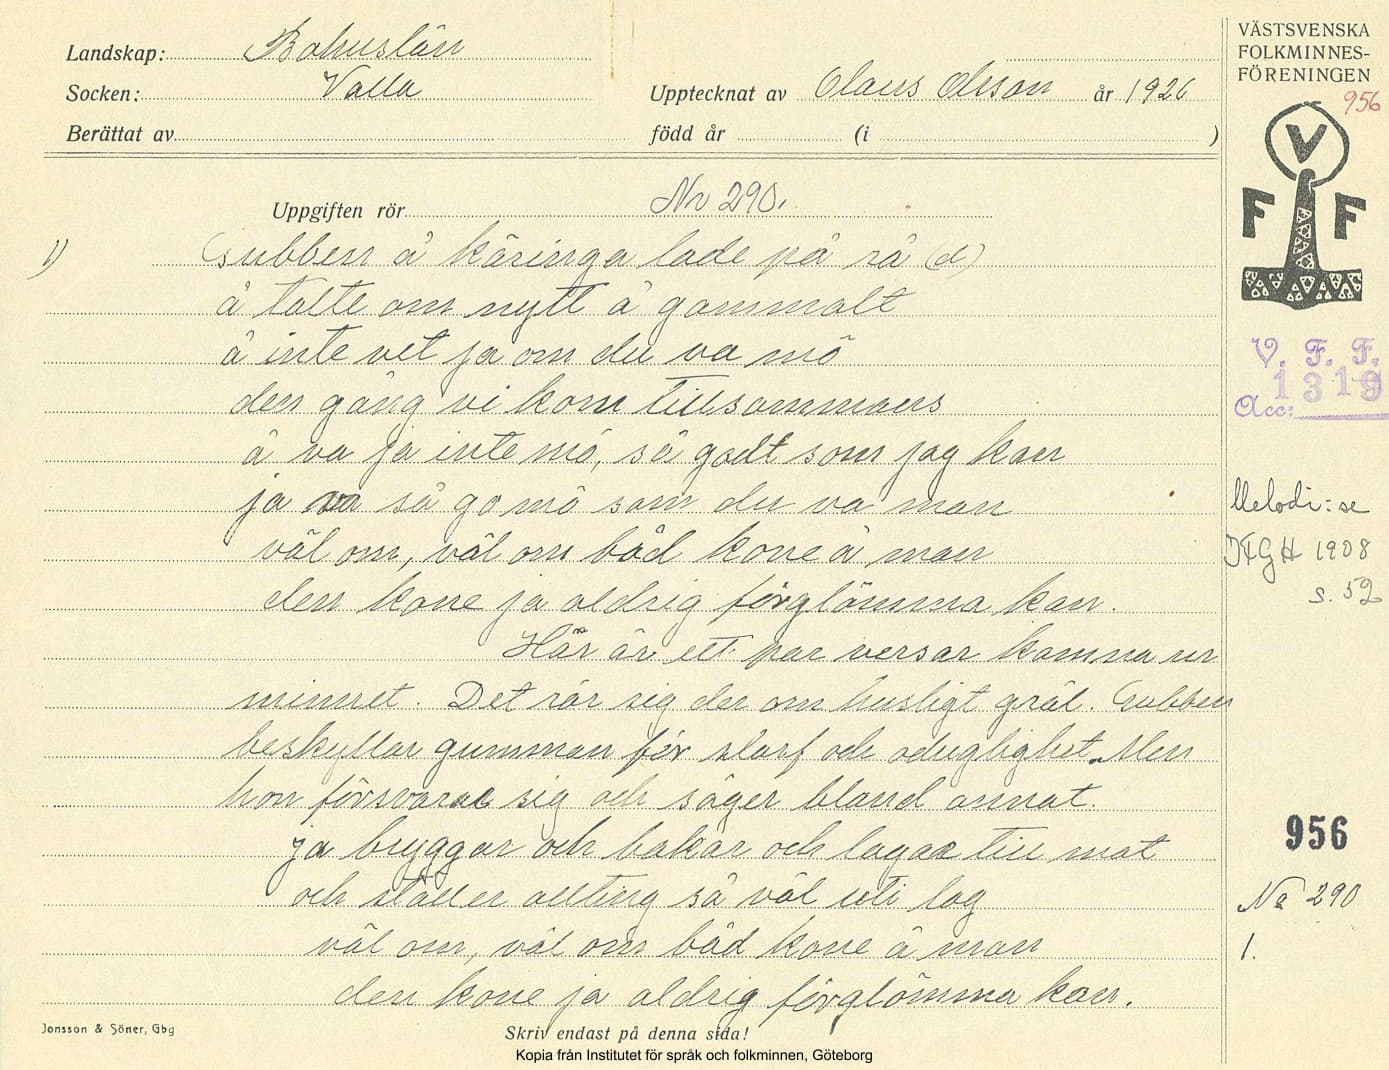 Landskap: Bohuslän
Socken: Valla
Upptecknat av Olaus Olsson år 1926
Berättat av
född år (i )
Uppgiften rör Nr 290.
1) Gubben å käringa lade på rå (d)
å talte om nytt å gammalt
å inte vet ja om du va mö
den gång vi kom tillsammans
å va ja inte mö, så godt som jag kan
ja va så go mö som du va man
väl om, väl om båd kone å man
den kone ja aldrig förglömma kan.
Här är ett par versar komna ur
minnet. Det rör sig der om husligt gräl. Gubben
beskyllar gumman för slarf och oduglighet. Men
hon försvarar sig och säger bland annat.
ja bryggar och bakar och lagar till mat
och ställer allting så väl uti lag
väl om, väl om båd kone å man
den kone ja aldrig förglömma kan.
Jonsson & Söner, Gbg
Skriv endast på denna sida!
Kopia från Institutet för språk och folkminnen, Göteborg
VÄSTSVENSKA
FOLKMINNES-
FÖRENINGEN
956
V
F F
V. F. F.
1319
Acc:
Melodi: se
1908
s. 52
956
No 290
1.